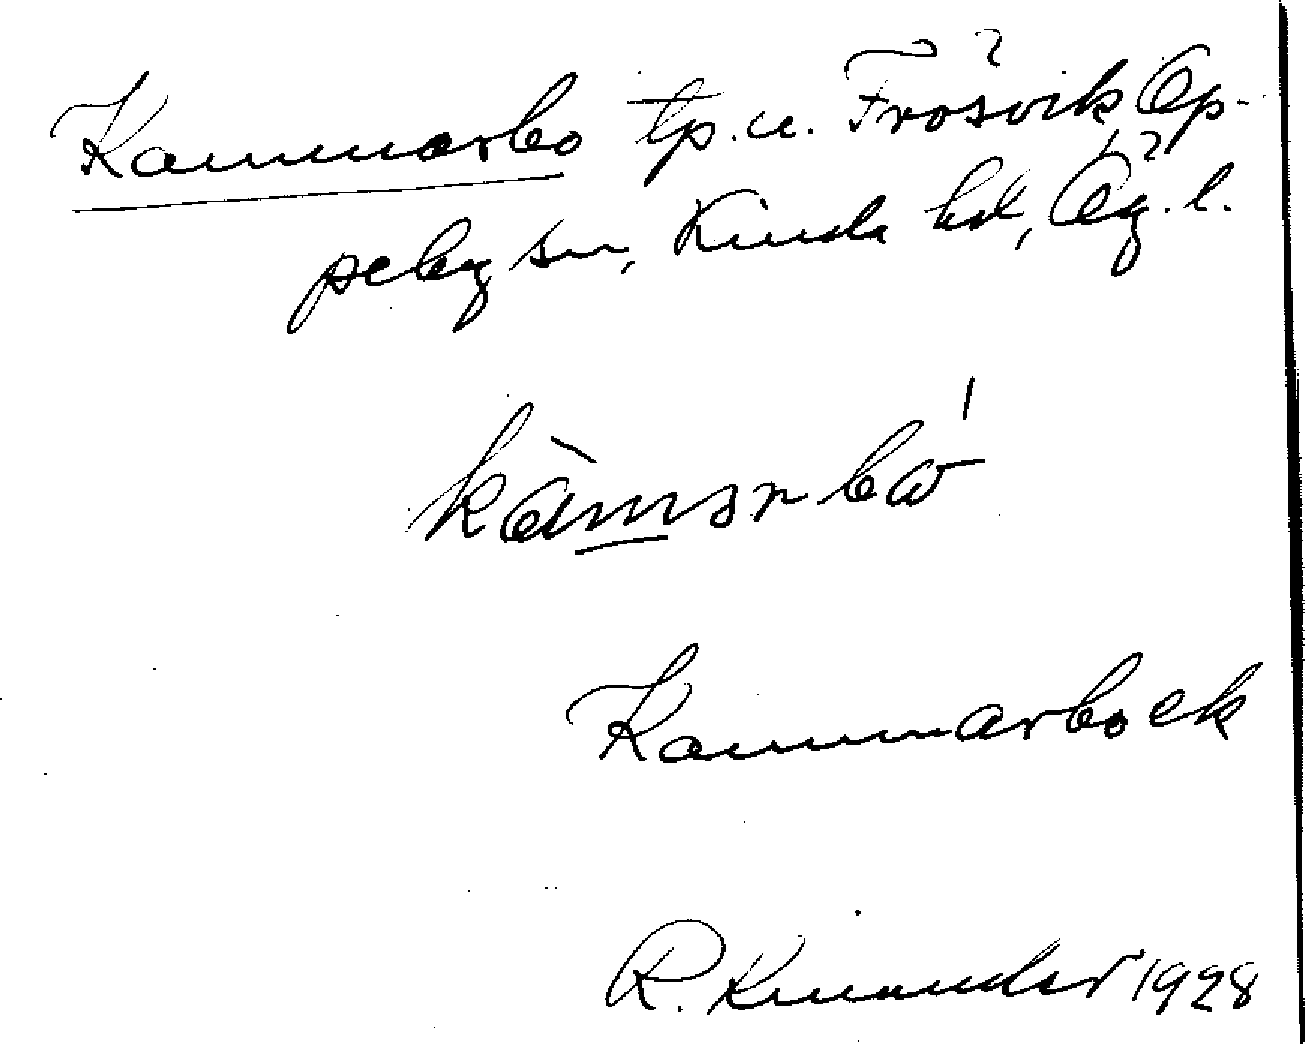 Kammarbo tp. u. Frösvik Op-
peby sn, Kinda hd, Ög. l.
Kammarboek
R. Kinander 1928